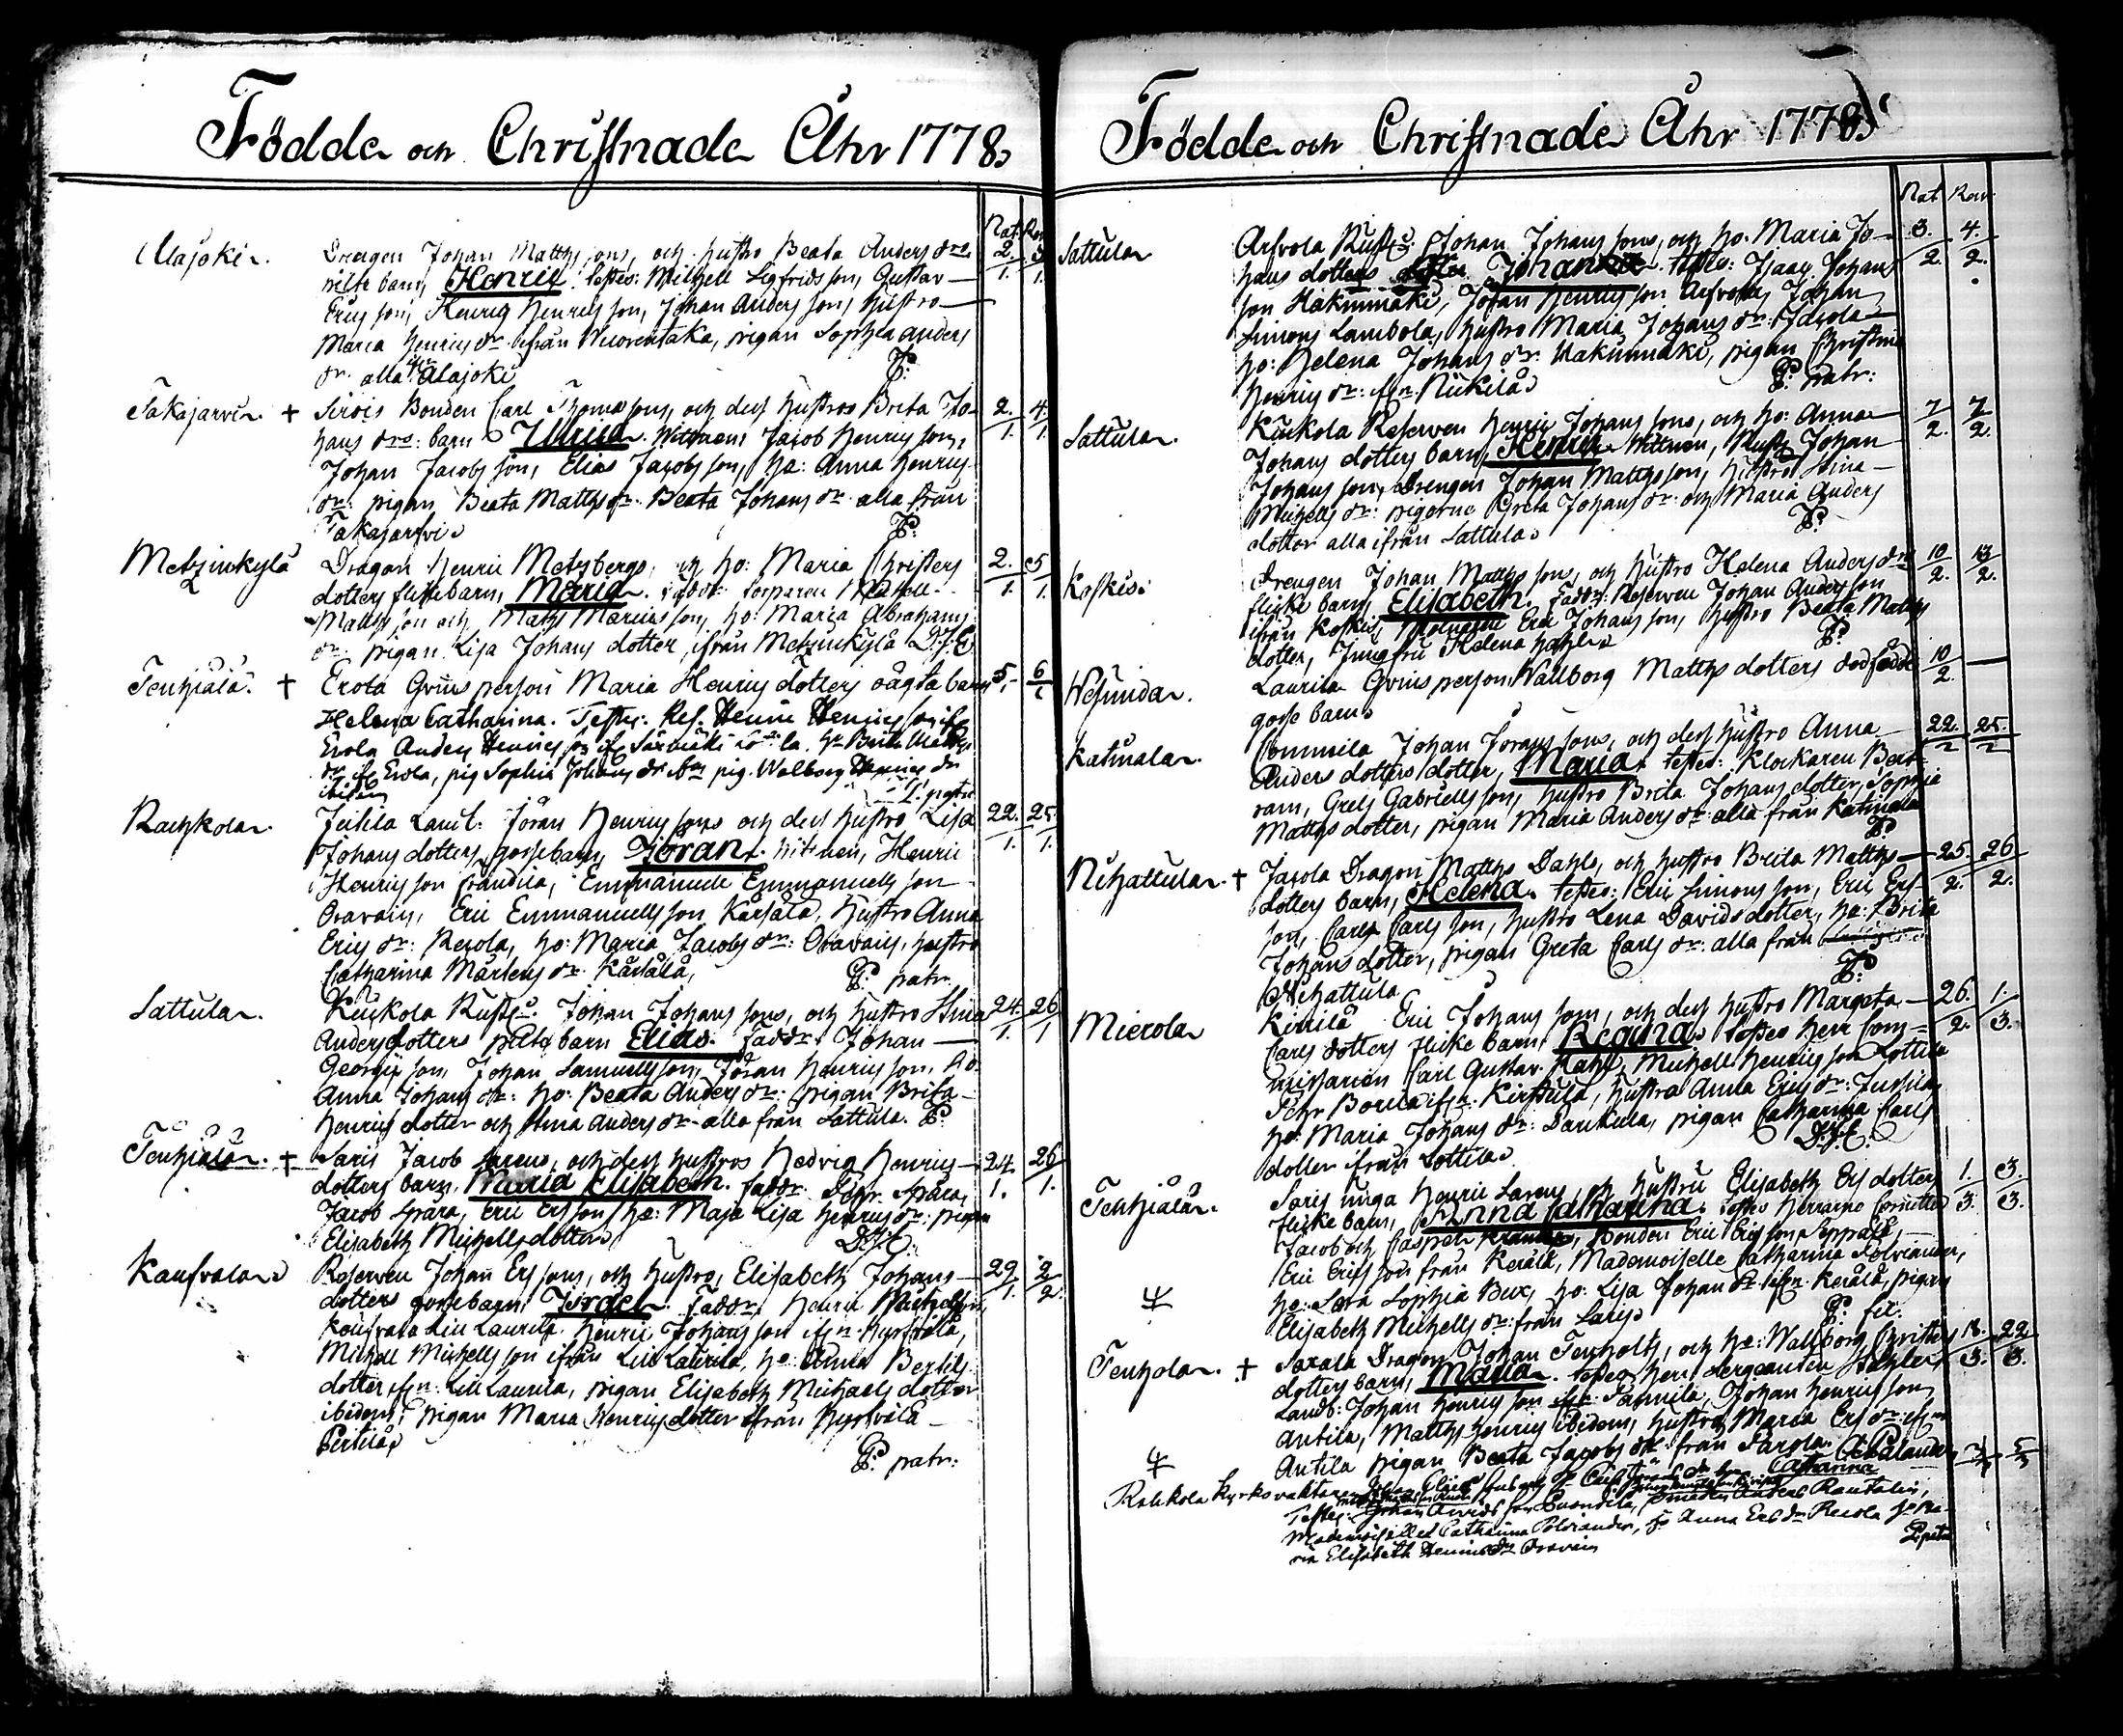 Födde och Christnade Åhr 1778.
Nat. Ren.
Alajoki. Drengen Johan Matths sons, och hustro Beata Anders drs 2. 3
pilte barn, Henric. testes: Michell Sigfrids son, Gustav 1. 1.
Erics son, Henric Henrics son, Johan Anders son, hustro
Maria Henrics dr. ifrån Wuorentaka, pigan Sophia Anders
dr. alla Alajoki P:
Takajarvi. + Sirois Bonden Carl Thomæ sons, och dess hustros Brita Jo- 2. 4.
hans drs: barn Ulrica. Wittnen: Jacob Henrics son, 1. 1.
Johan Jacobs son, Elias Jacobs son, ho: Anna Henrics
dr: pigan Beata Matths dr. Beata Johans dr. alla från
Takajarfvi. P:
Metzinkylä Dragon Henric Metzbergs, och ho: Maria Christers 2. 5
dotters flickebarn, Maria. 1. 1.
Matts son och Matts Marcus son, ho: Maria Abrahams
dr. pigan Lisa Johans dotter, ifrån Metzinkylä D.J.C
Tenhiälä. + Erola Qvins person Maria Henrics dotters oägta barn 5. 6
Helena Catharina. Testes: Ref. Henric Henrics son if.
Erola Anders Henrics son
dr if. Erola, pig Sophia Johans dr pig. Walborg Henrics dr
ibidem P. patr.
Rachkola. Jutila Landb: Jöran Henrics sons och dess hustro Lisa 22. 25.
Johans dotters gossebarn, Jöran. Wittnen, Henric 1. 1.
Henrics son Frandila, Emmanuel Emmanuells son
Oravais, Eric Emmanuells son Kärsälä, hustro Anna
Erics dr: Recola, ho: Maria Jacobs dr: Oravais, hustro
Catharina Mårtens dr. Kärsälä, P: patr.
Sattula. Kuckola Johan Johans sons, och hustro Stina 24. 26
Anders dotters pilte barn Elias. Faddr: Johan 1. 1
Georgii son, Johan Samuells son, Jöran Henrics son, ho.
Anna Johans dr: ho: Beata Anders dr: pigan Brita
Henrics dotter och Anna Anders dr. alla från Sattula. P:
Tenhiälä. + Saris Jacob Larsons, och dess hustros Hedvig Henrics 24. 26
dotters barn, Maria Elisabeth. Faddr. Spåra, 1. 1.
Jacob Spåra, Eric Ers son, ho: Maja Lisa Henrics dr: pigan
Elisabeth Michells dotter. D.J.C.
Kankvala. Reserven Johan Ers sons, och hustro, Elisabeth Johans 29 2
dotters gossebarn, Israel. Faddr. Henric Michells son 1. 2
Lill Laurila. Henric Johans son ifrn. Hyrsvälä,
Michell Michells son ifrån Lill Laurila, ho: Anna Bertils
dotter ifrn. Lill Laurila, pigan Elisabeth Michaels dotter
ibidem, pigan Maria Henrics dotter ifrån Hyrsvälä
Pertila. P: patr:
Födde och Christnade Åhr 1778.
Nat. Ren
Sattula Arfvola Johan Johans sons, och ho: Maria Jo- 3. 4.
hans dotters Johan. testes: Isaac Johans 2. 2.
son Hakumäki, Johan Henrics son Johan
Simons Lambola, hustro Maria Johans dr.
ho: Helena Johans dr: Hakumäki, pigan Christina
Henrics dr: ifrn. Nickilä. P: patr:
Sattula. Kuckola Reserven Henric Johans sons, och ho: Anna 7 7
Johans dotters barn, Henric. Wittnen, Johan 2. 2.
Johans son, Drengen Johan Matths son, hustro Stina
Michells dr: pigorne Greta Johans dr: och Maria Anders
dotter alla ifrån Sattula. P:
Koskis. Drengen Johan Matths sons, och hustro Helena Anders drs 10 13
flicke barn, Elisabeth. Faddr: Reserven Johan Anders son 2. 2.
ifrån Koskis, Eric Johans son, hustro Beata Matths
dotter, Jungfru Helena P:
Wesunda. Laurila Qvins person, Wallborg Matths dotters dödfödde 10
gosse barn. 2.
Katinala. Johan Jörans sons, och dess hustro Anna 22. 25.
Anders dotters dotter, Maria. testes: Klockaren Bert- 2 2
ram, Grels Gabriells son, hustro Brita Johans dotter, Sophia
Matths dotter, pigan Maria Anders dr. alla från Katinala
P:
Nihattula. + Jacola Dragon Matths Dahls, och hustro Brita Matths 25. 26
dotters barn, Helena. testes: Eric Simons son, Eric Ers- 2. 2.
son, Carl Carls son, hustro Lena Davids dotter, ho: Brita
Johans dotter, pigan Greta Carls dr: alla från
Nihattula P:
Mierola Kirrilä Eric Johans sons, och dess hustro Margeta 26. 1.
Carls dotters flicke barn, Regina. testes Herr Com- 2. 3.
missarien Carl Gustav Michell Henrics son Lottila
ifrn. Kirstula, hustro Anna Erics dr. Jussila
ho: Maria Johans dr: pigan Catharina Carls
dotter ifrån Lottila. D.J.C.
Tenhiälä. Saris unga Henric Larsons, och hustru Elisabeth Ers dotters 1. 3.
flicke barn, Anna Catharina. testes Herrarne Cornetten 3. 3.
Jacob och Casper Bonden Eric Erics son Seppälä,
Eric Erics son från Kerälä, Mademoiselle Catharina Polviander,
ho: Sara Sophia ho: Lisa Johan dr. ifrn. Kerälä, pigan
Elisabeth Michells dr. från Saris. P: fil.
Tenhola. + Saxala Dragon Johan Tenholts, och ho: Wallborg Christers 18. 22
dotters barn, Maria. testes Herr Sergeanten 3. 3.
Landb: Johan Henrics son Johan Henrics son
Antila, Matths Henrics ibidem, hustro Maria Ers dr: ifrn
Antila pigan Beata Jacobs dr. från Parola.
Rahkola Kyrkovaktaren Johan Catharina
Testes: Johan
Mademoiselle Catharina Polviander, ho Anna Ers dr Recola
ria Elisabeth Henrics dr Oravais